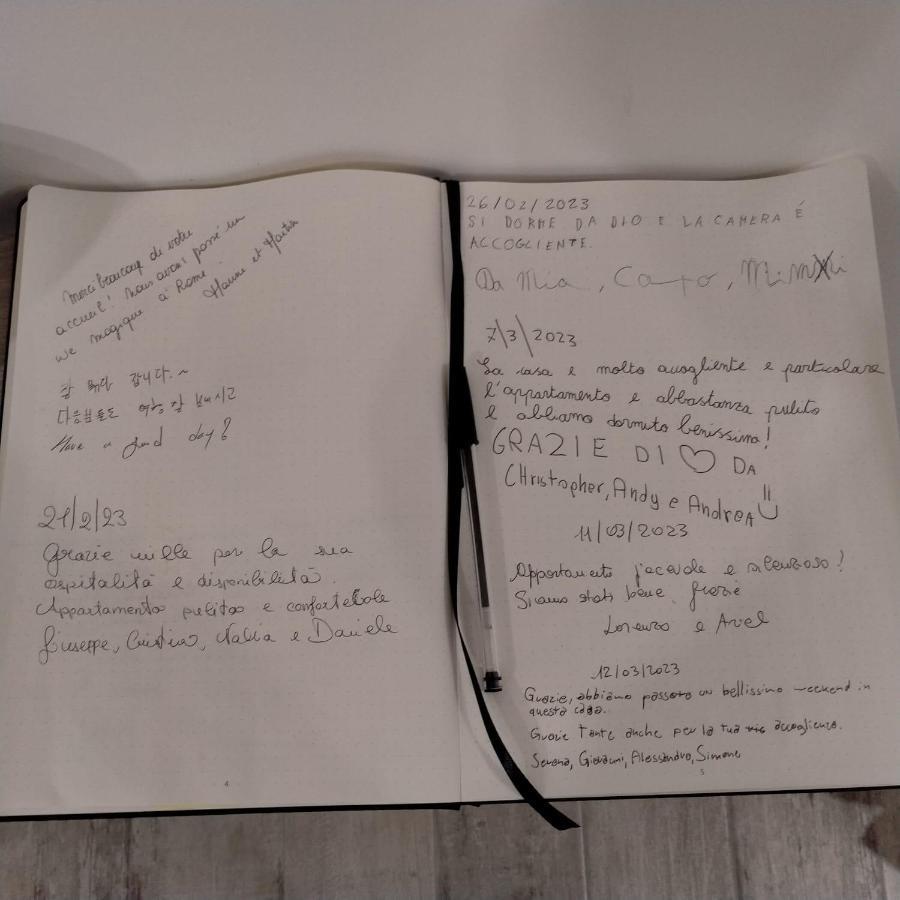 Merci beaucoup de votre
accueil! Nous avons passé un
we magique à Rome.
et
잘 쉬다 갑니다.~
다음분들도 여행 잘 보내시고
Have a good day!
21/2/23
Grazie mille per la sua
ospitalità e disponibilità.
Appartamento pulito e
Giuseppe, Cristina, e Daniele
26/02/2023
SI DORME DA DIO E LA CAMERA É
ACCOGLIENTE.
Da Mia,
7/3/2023
La casa e molto accogliente e particolare
l'appartamento e abbastanza pulito
e abbiamo dormito benissimo!
GRAZIE DI ♡ DA
CHristopher, Andy e AndreA
11/03/2023
Appartamento e silenzioso!
Siamo stati bene. Grazie
Lorenzo e
12/03/2023
Grazie, abbiamo passato un bellissimo weekend in
questa casa.
Grazie tante anche per la tua accoglienza.
Serena, Giovanni, Alessandro, Simone
4
5